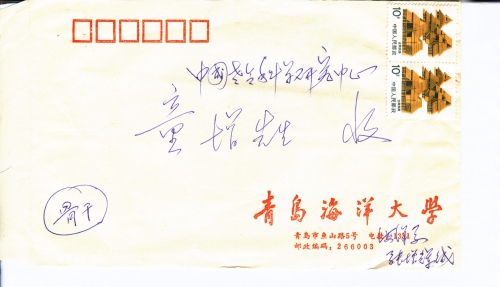 10分
中国人民邮政
10分
中国人民邮政
中国老年科学研究中心
童增先生 收
骨干
青島海洋大學
青岛市鱼山路5号
邮政编码：266003